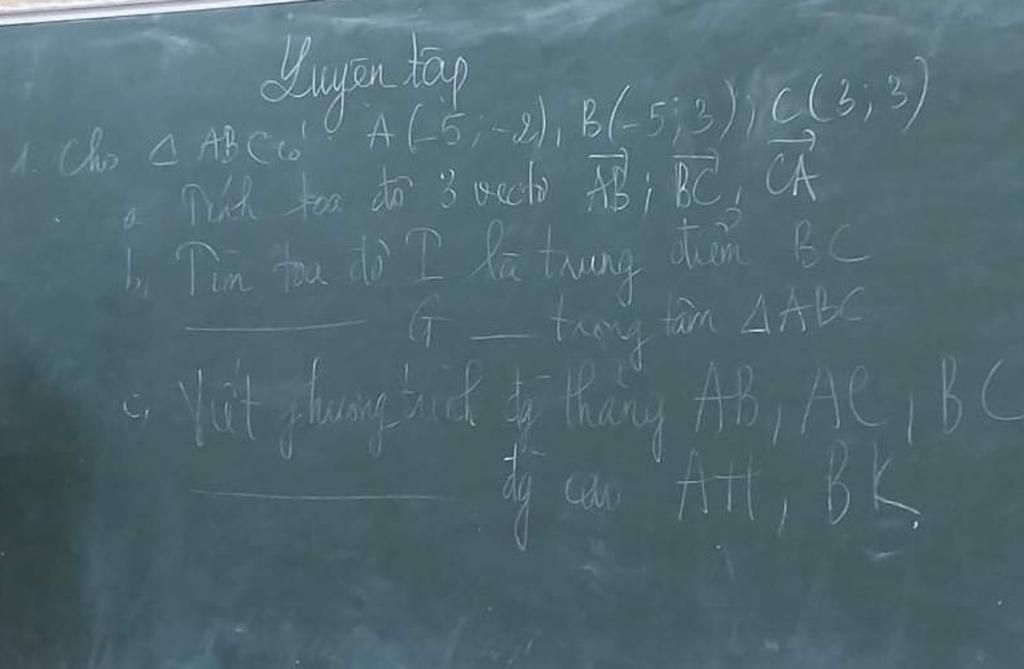 Luyện tập
1. Cho △ ABC có A(-5; -2), B(-5; 3), C(3; 3)
a, Tính toạ độ 3 vectơ $\overrightarrow{AB}$; $\overrightarrow{BC}$, $\overrightarrow{CA}$
b, Tìm toạ độ I là trung điểm BC
______ G __ trọng tâm △ABC
c, Viết phương trình đg thẳng AB, AC, BC
______ đg cao AH, BK.